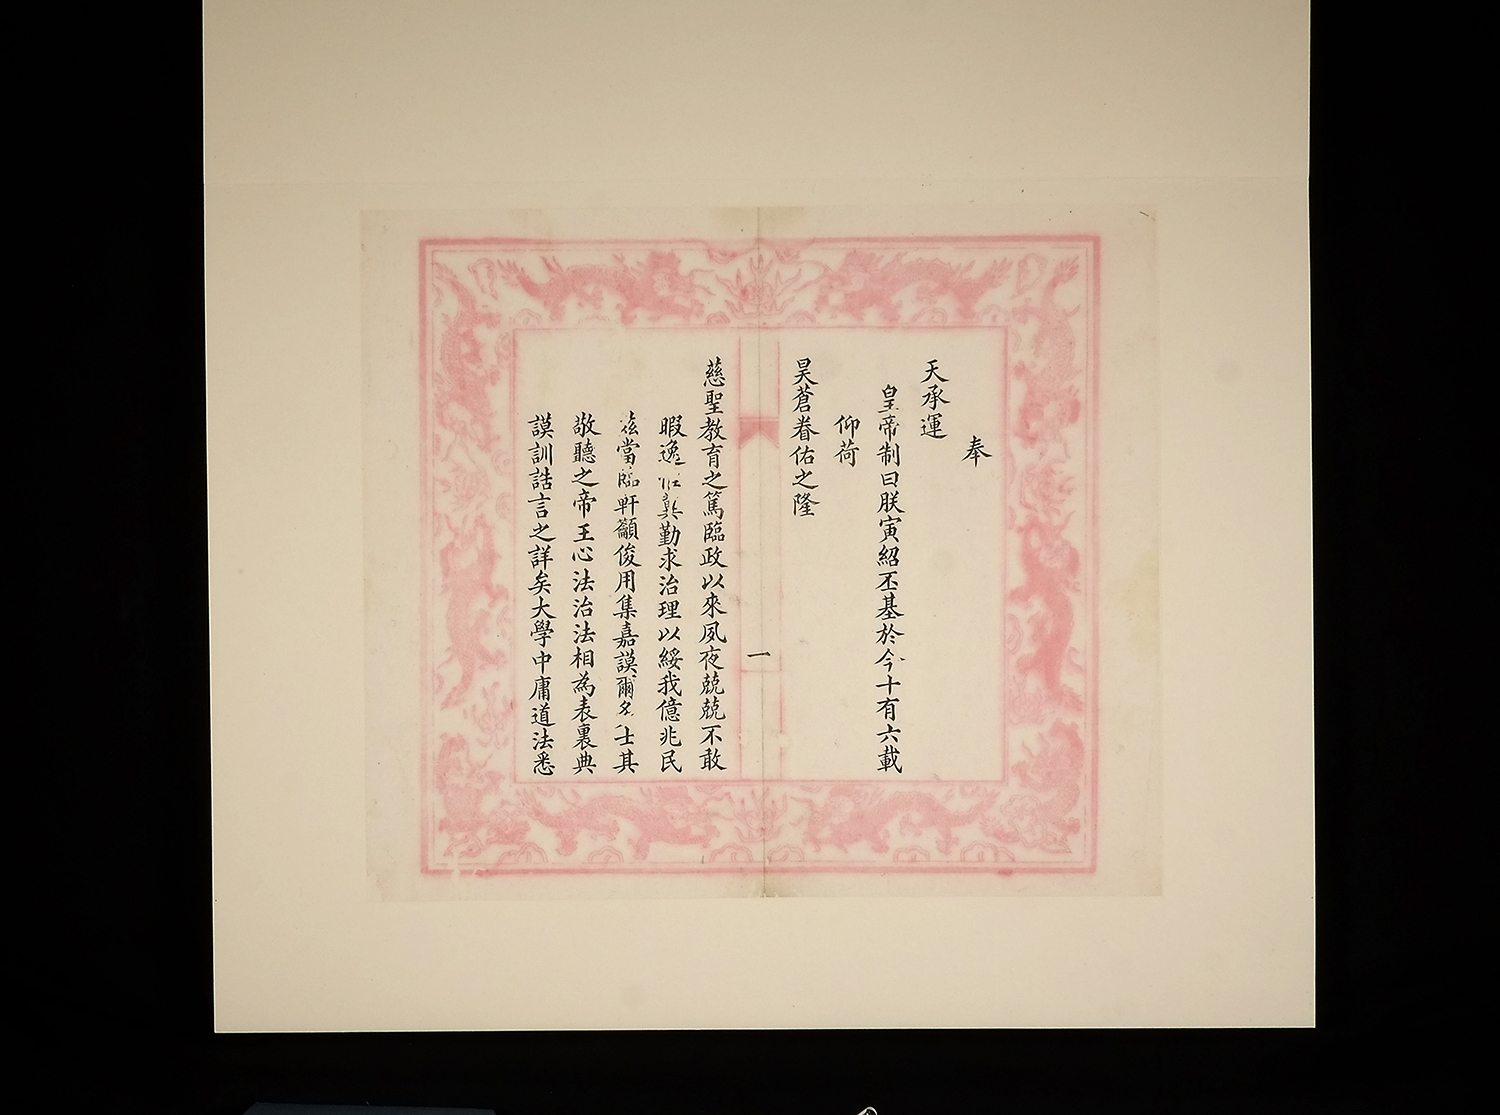 奉
天承運
皇帝制曰朕寅紹丕基於今十有六載
仰荷
昊蒼眷佑之隆
一
慈聖教育之篤臨政以來夙夜兢兢不敢
暇逸 勤求治理以綏我億兆民
茲當臨軒籲俊用集嘉謨爾多士其
敬聽之帝王心法治法相為表裏典
謨訓誥言之詳矣大學中庸道法悉